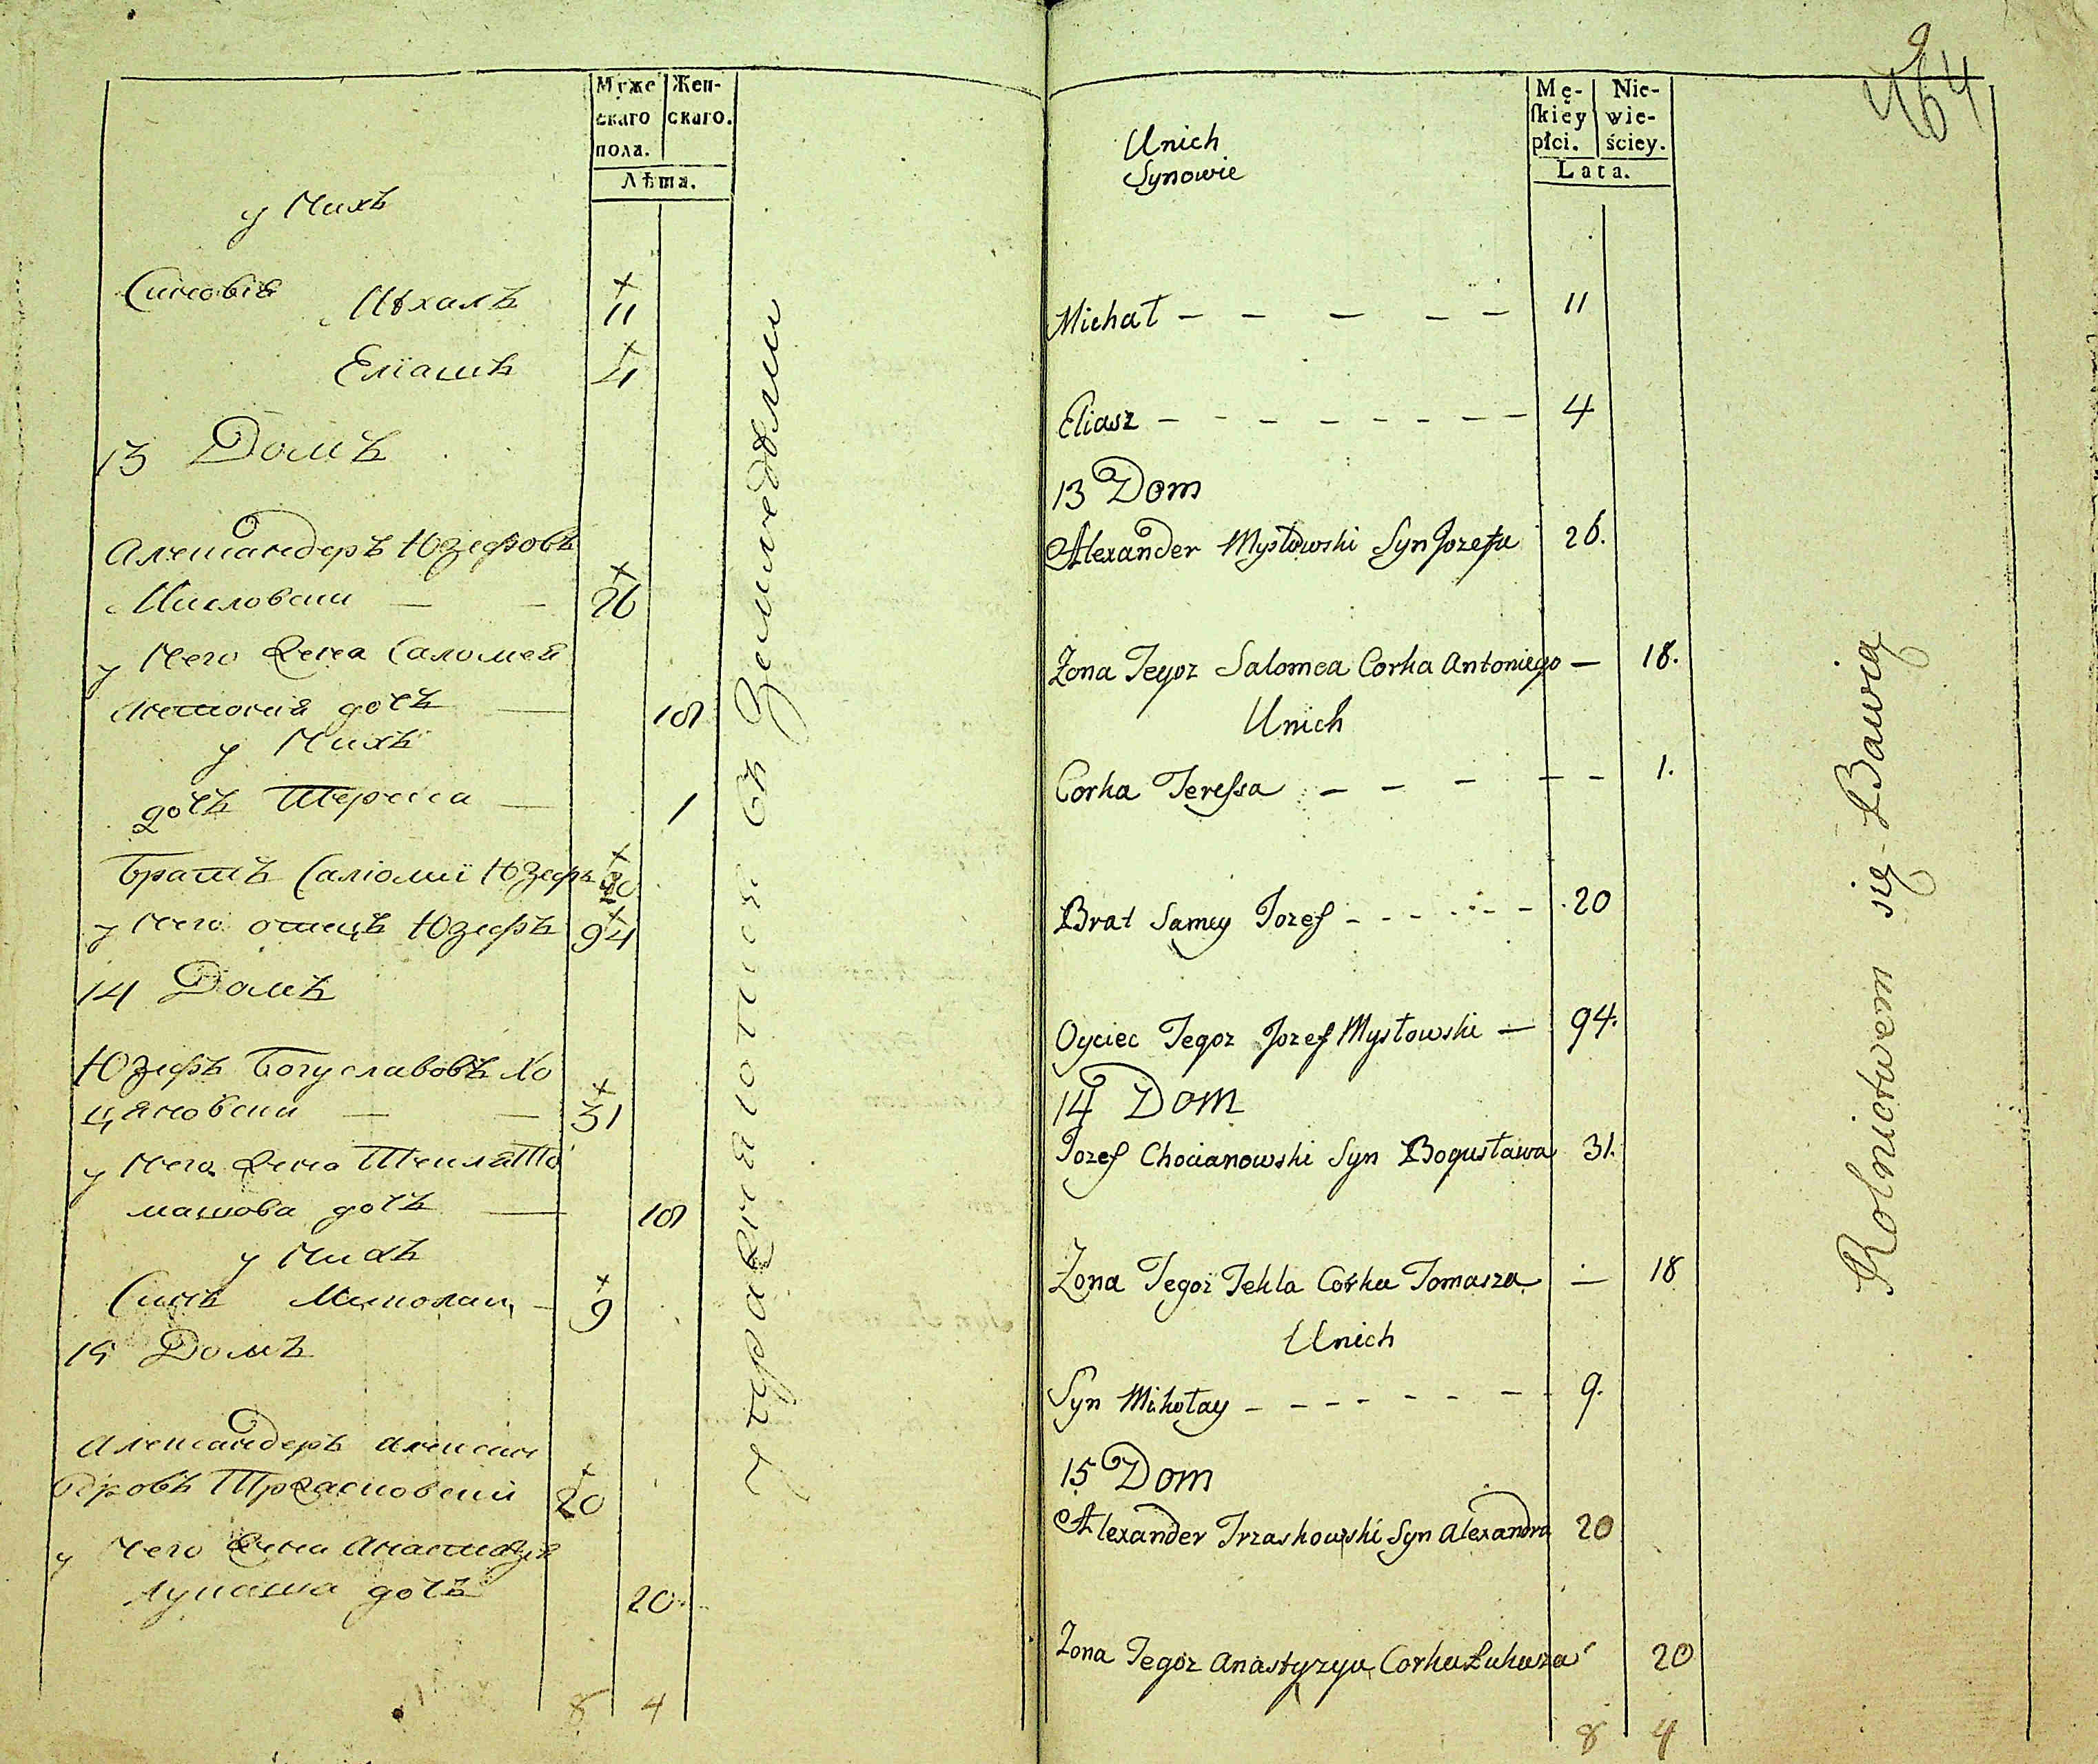 Муже
скаго
пола.
Жен-
скаго.
Лѣта.
у Нихъ
Синовія Михалъ 11
Еліашъ 4
13 Домъ
Александеръ Юзефовъ
Мисловски — — 26
у Него Жена Саломея
Антонія дочь — 18
у Нихъ
дочь Тереса — 1
Братъ Саломіи Юзефъ 20
у Него отецъ Юзефъ 94
14 Домъ
Юзефъ Богуславовъ Хо
цяновски — — 31
у Него Жена Текля То
машова дочь — 18
у Нихъ
Синъ Миколай — 9
15 Домъ
Александеръ Алексан
дровъ Тржасковский 20
у Него Жена Анастазия
Лукаша дочь 20
8 4
упражняются въ Земледелии
464
Mę-
skiey
płci.
Nie-
wie-
ściey.
Lata.
Unich
Synowie
Michał — — — — — 11
Eliasz — — — — — — — — 4
13 Dom
Alexander Mysłowski Syn Jozefa 26.
Zona Tegoz Salomea Corka Antoniego — 18.
Unich
Corka Teressa — — — — — 1.
Brat Samey Jozef — — — — — — 20
Oyciec Tegoz Jozef Mysłowski — 94.
14 Dom
Jozef Chocianowski Syn Bogusława 31.
Zona Tegoz Tekla Corka Tomasza — 18
Unich
Syn Mikołay — — — — — — — 9.
15 Dom
Alexander Trzaskowski Syn Alexandra 20
Zona Tegoz Anastyzya Corka Łukasza 20
8 4
Rolnictwem się Bawią